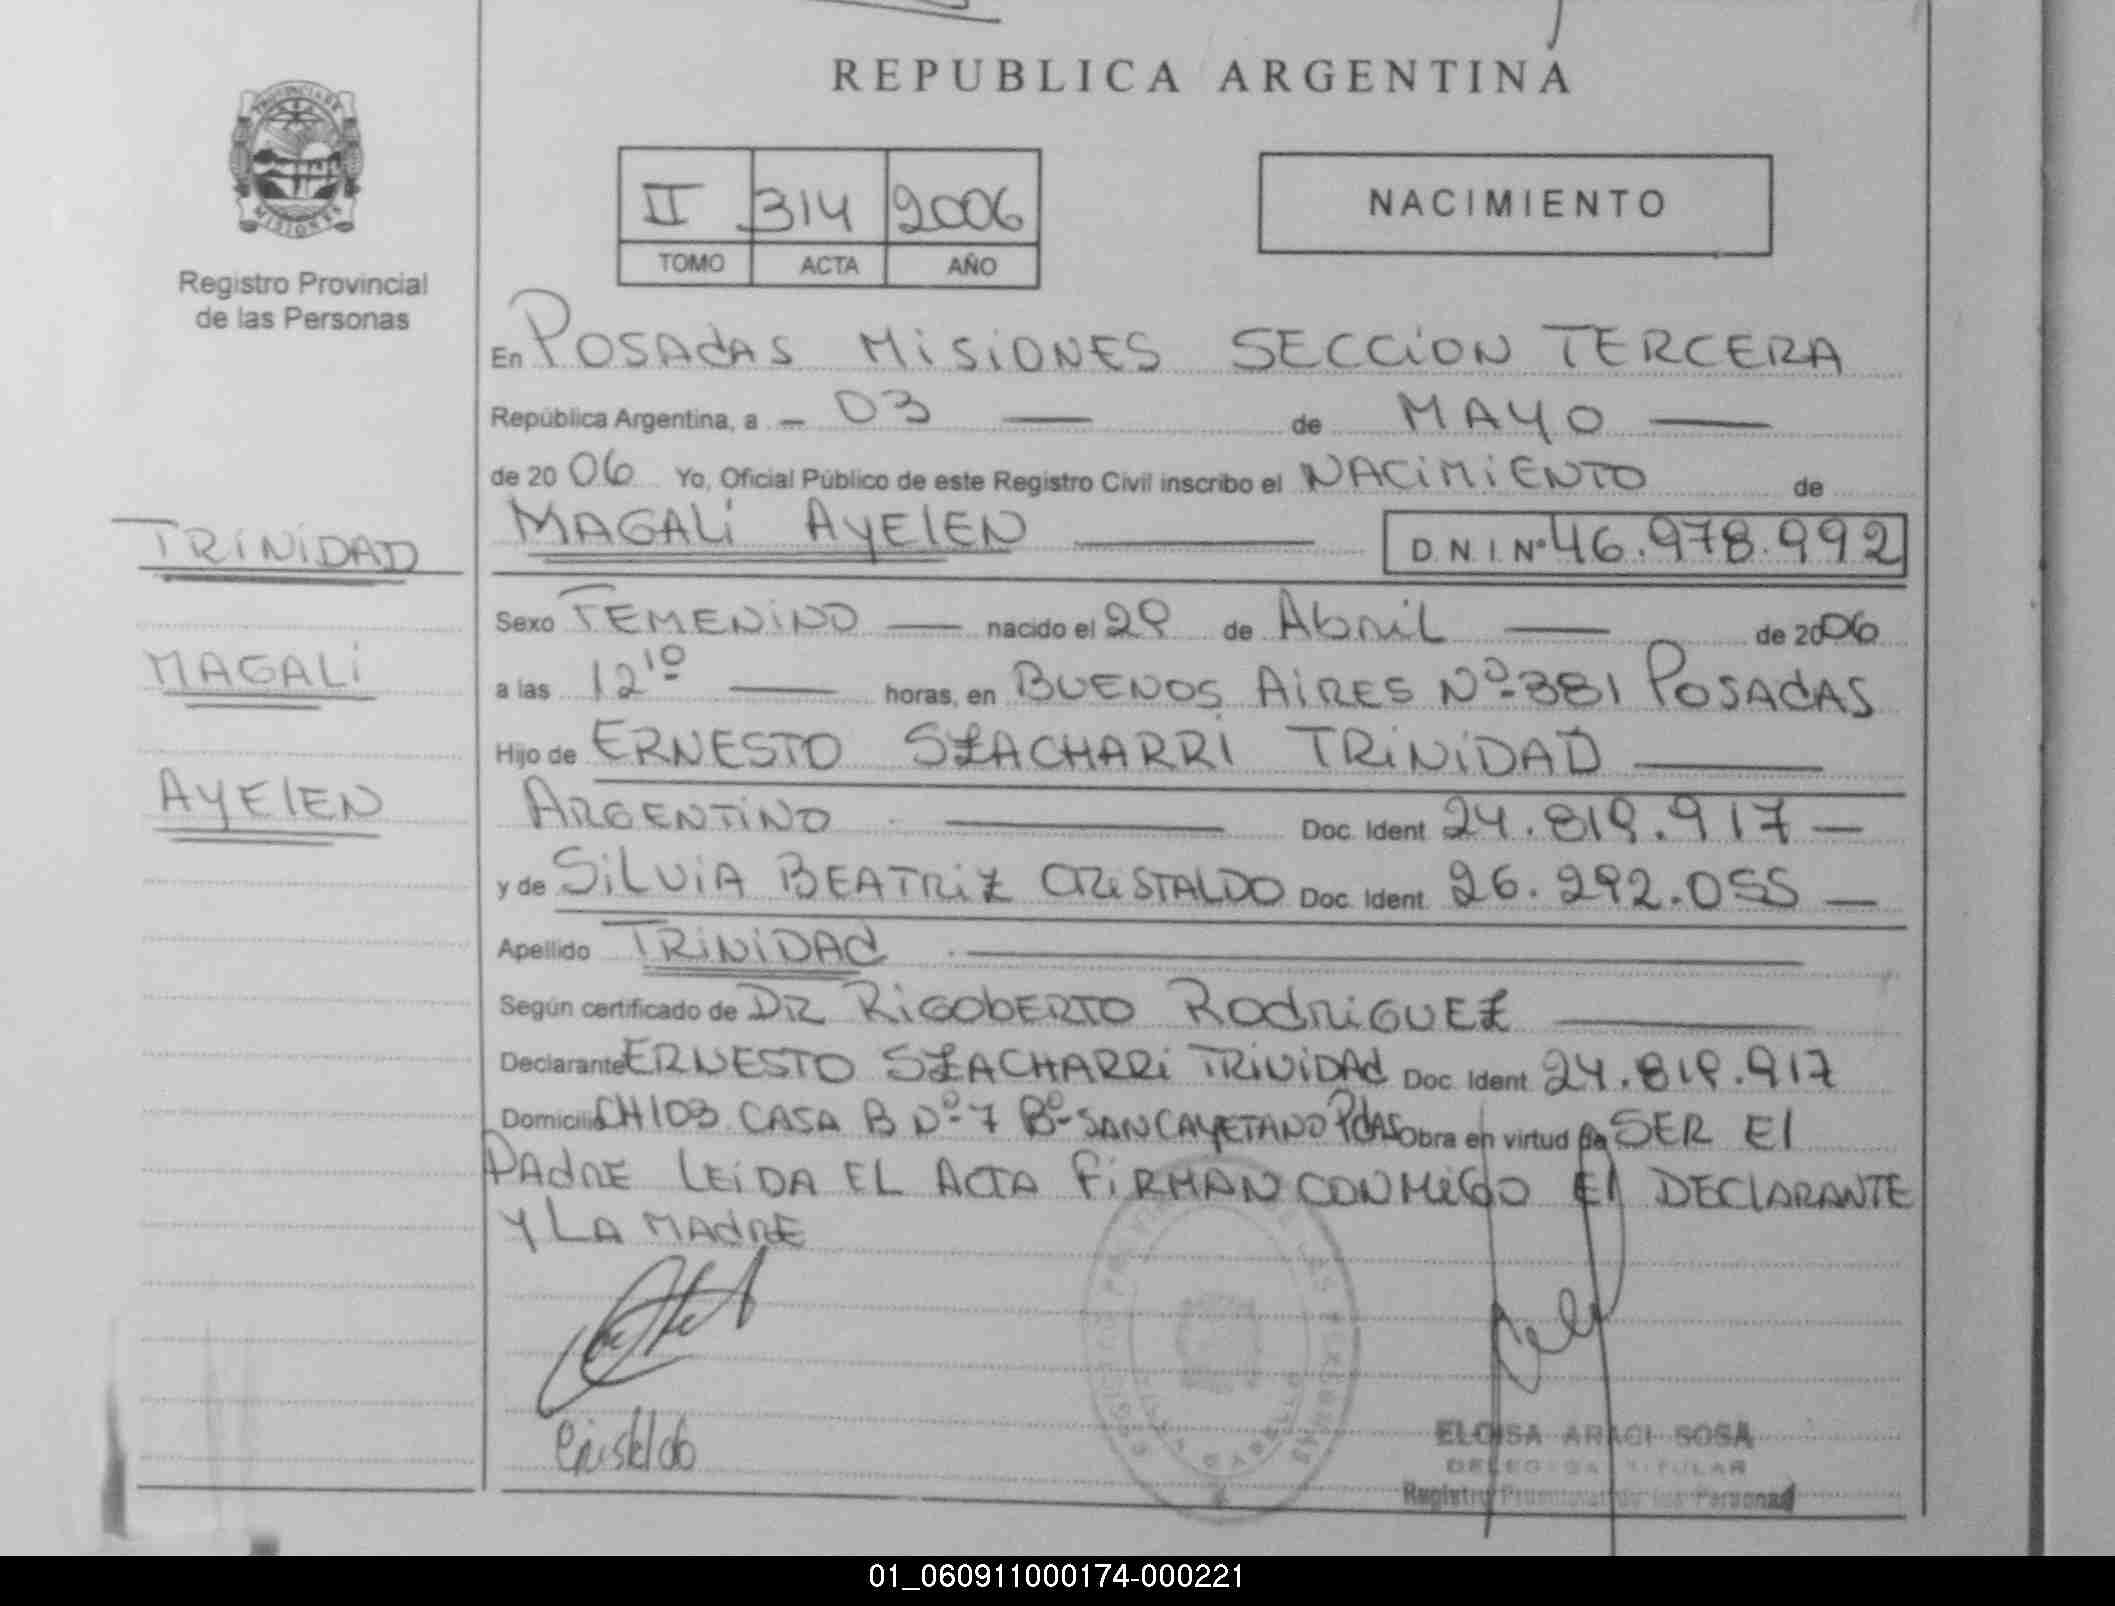 REPUBLICA ARGENTINA
PROVINCIA DE
MISIONES
Registro Provincial
de las Personas
II 314 2006
TOMO ACTA AÑO
NACIMIENTO
En POSADAS MISIONES SECCION TERCERA
República Argentina, a - 03 — de MAYO —
de 20 06 Yo, Oficial Público de este Registro Civil inscribo el NACIMIENTO de
MAGALI AYELEN — D.N.I. Nº 46.978.992
TRINIDAD
MAGALI
AYELEN
Sexo FEMENINO — nacido el 29 de Abril — de 2006
a las 12 10 — horas, en BUENOS AIRES Nº 381 POSADAS
Hijo de ERNESTO SZACHARRI TRINIDAD —
ARGENTINO — Doc. Ident. 24.819.917 —
y de SILVIA BEATRIZ CRISTALDO Doc. Ident. 26.292.055 —
Apellido TRINIDAD —
Según certificado de DR RIGOBERTO RODRIGUEZ —
Declarante ERNESTO SZACHARRI TRINIDAD Doc. Ident. 24.819.917
Domicilio CH 103 CASA B Nº 7 Bº SAN CAYETANO PDAS Obra en virtud de SER El
PADRE LEIDA EL ACTA FIRMAN CONMIGO El DECLARANTE
Y LA MADRE
Cristaldo
ELOISA ARACI SOSA
DELEGADA TITULAR
Registro Provincial de las Personas
01_060911000174-000221